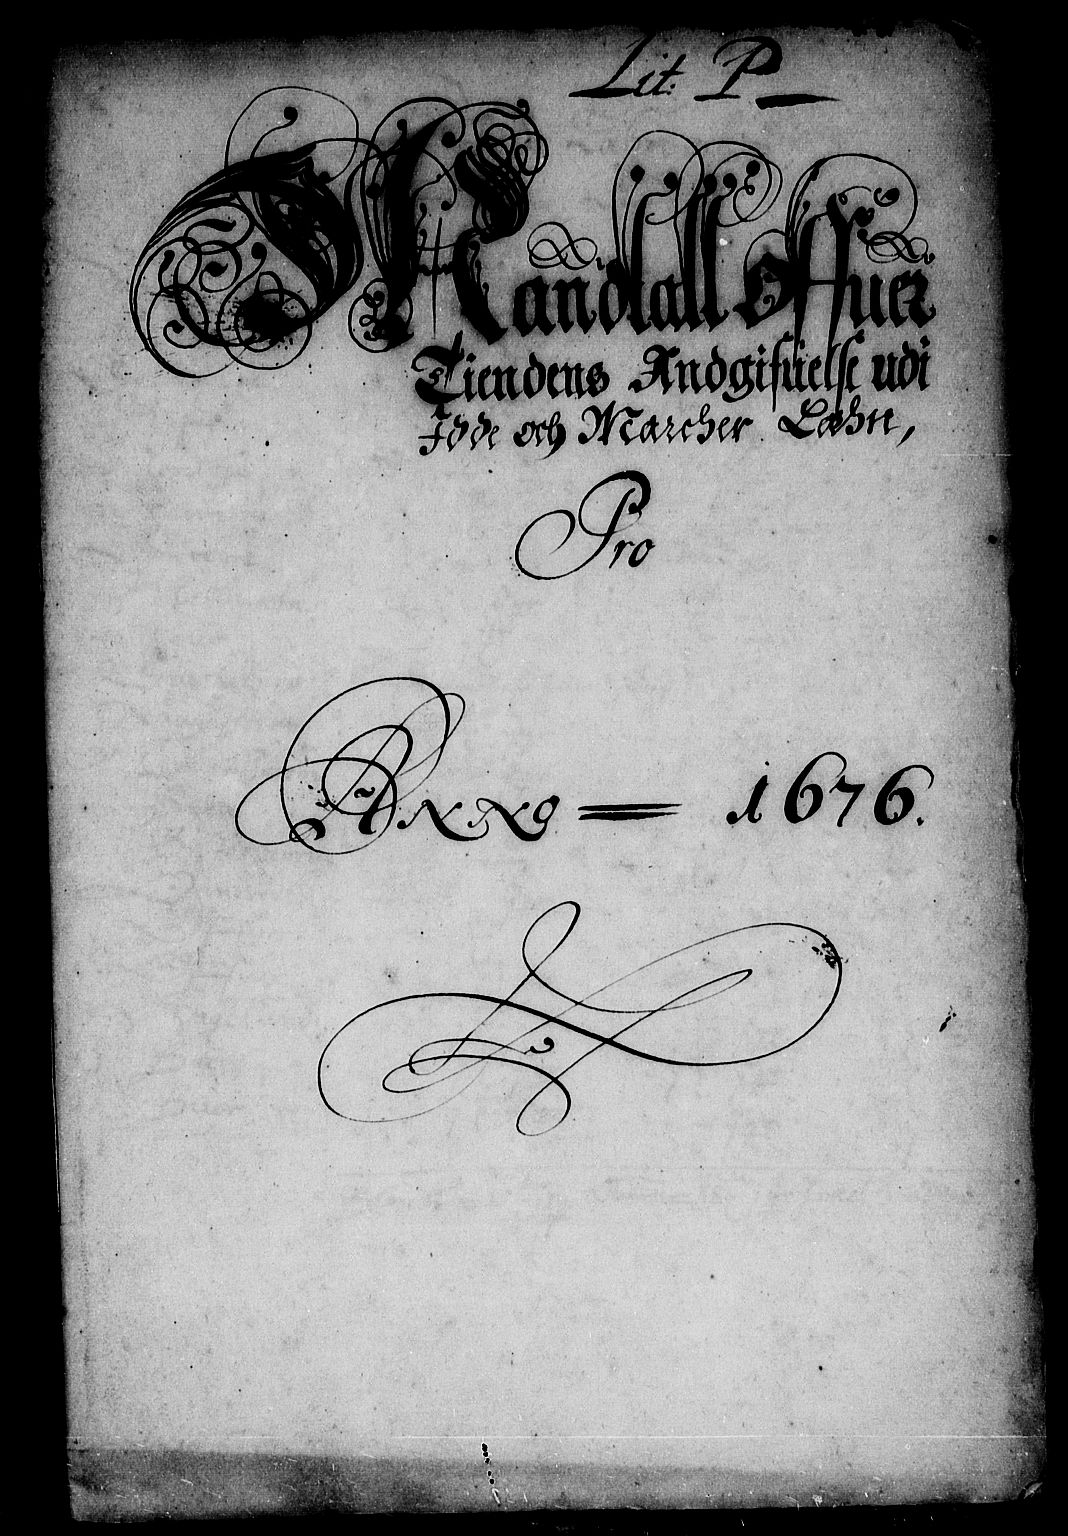 Lit. P
Mandtall offuer
Tiendens Andgifuelse udi
Idde och Marcher Læhn,
Pro
Anno = 1676.